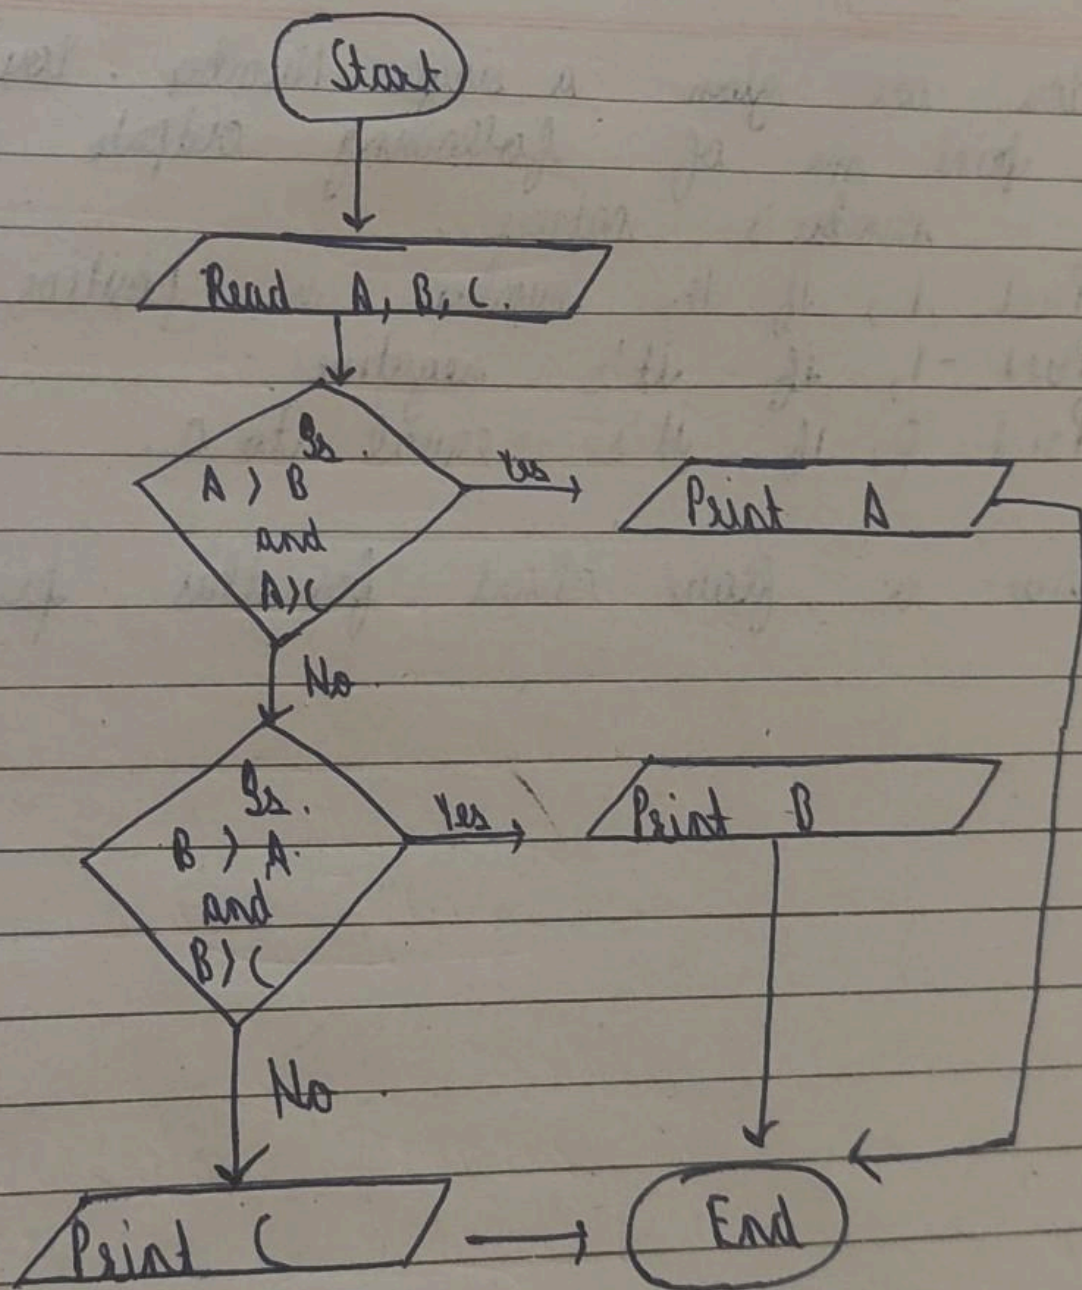 Start
Read A, B, C.
Is
A > B
and
A > C
Yes
Print A
No
Is.
B > A
and
B > C
Yes
Print B
No
Print C
End